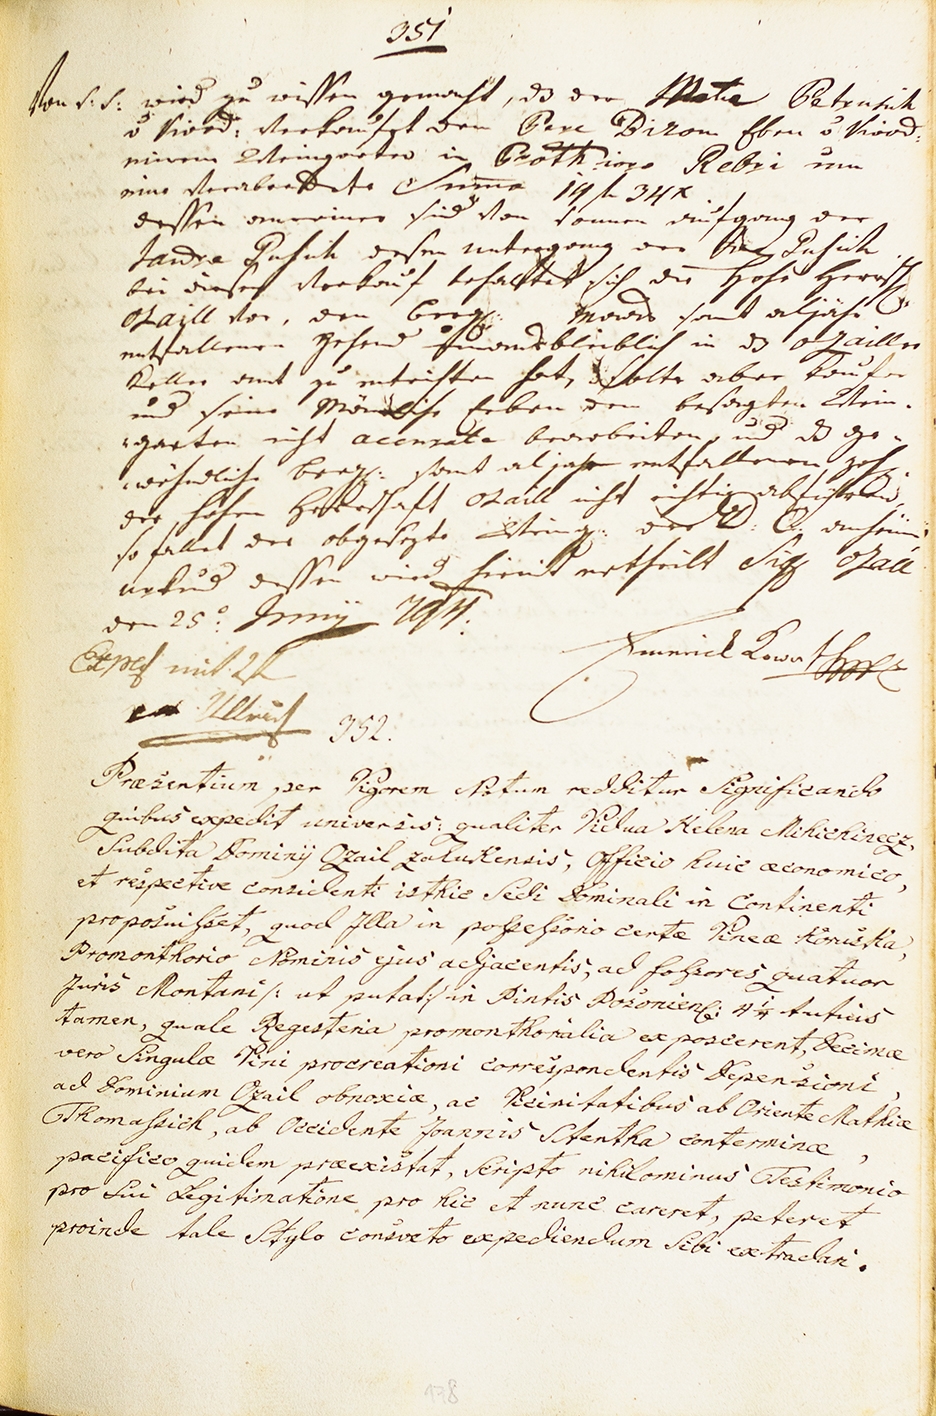 351
Von S: S: wird zu wissen gemacht, dß der Matia Petrusich
v Kroa͞d: verkauft dem Pere Dizom Eben v Kroad:
einem Weingarten in Roth Rebri um
eine verabredete Suma 14 f 34 x.
dessen anreiner sind von Sonnen aufgang der
Jandre Puhich dessen untergang der Puhich
bei diesen Verkauf behaltet sich die Hohe Herrsch
Ozaill vor, den berg: Mords samt aljähr
entfallenen Zehend in dß Ozailler
Keller amt zu entrichten hat, Solte aber Kaufer
und seine Mänliche Erben den besagten Wein-
garten nicht accurate bearbeiten, und dß ge-
wöhnliche berg: samt aljahr entfallenen zeh
der hohen Herrschaft Ozaill nicht richtig abführen,
so fallet der obgesezte Weing: der anheim
urkund dessen wird hiemit ertheilt Sig Ozail
den 25º: Junij 794:
Emerich Kowa
Exped mit 2 f
352.
Præsentium per Vigorem Notum redditur Significando
quibus expedit universis: qualiter Vidua Helena Mihichinecz,
Subdita Dominij Ozail Zalukensis, Officio huic œconomico,
et respective considenti isthic Sedi Dominali in Continenti
proposuisset, quod Illa in possessorio certæ Vineæ Koruska,
Promonthorio Nominis ejus adjacentis, ad fossores quatuor
Juris Montani /: ut putat :/ in Pintis Posoniens: 4¼ tutius
tamen, quale Regesteria promonthoralia exposcerent, Decimæ
vero Singulæ Vini procreationi correspondentis Dependsioni,
ad Dominium Ozail obnoxiæ, ac Vicinitatibus ab Oriente Mathiæ
Thomassich, ab Occidente Joannis Stentha conterminæ,
pacifico quidem præexistat, Scripto nihilominus Testimonio
pro Sui Legitimatione pro hic et nunc careret, peteret
proinde tale Stylo consveto expediendum Sibi extradari.
178